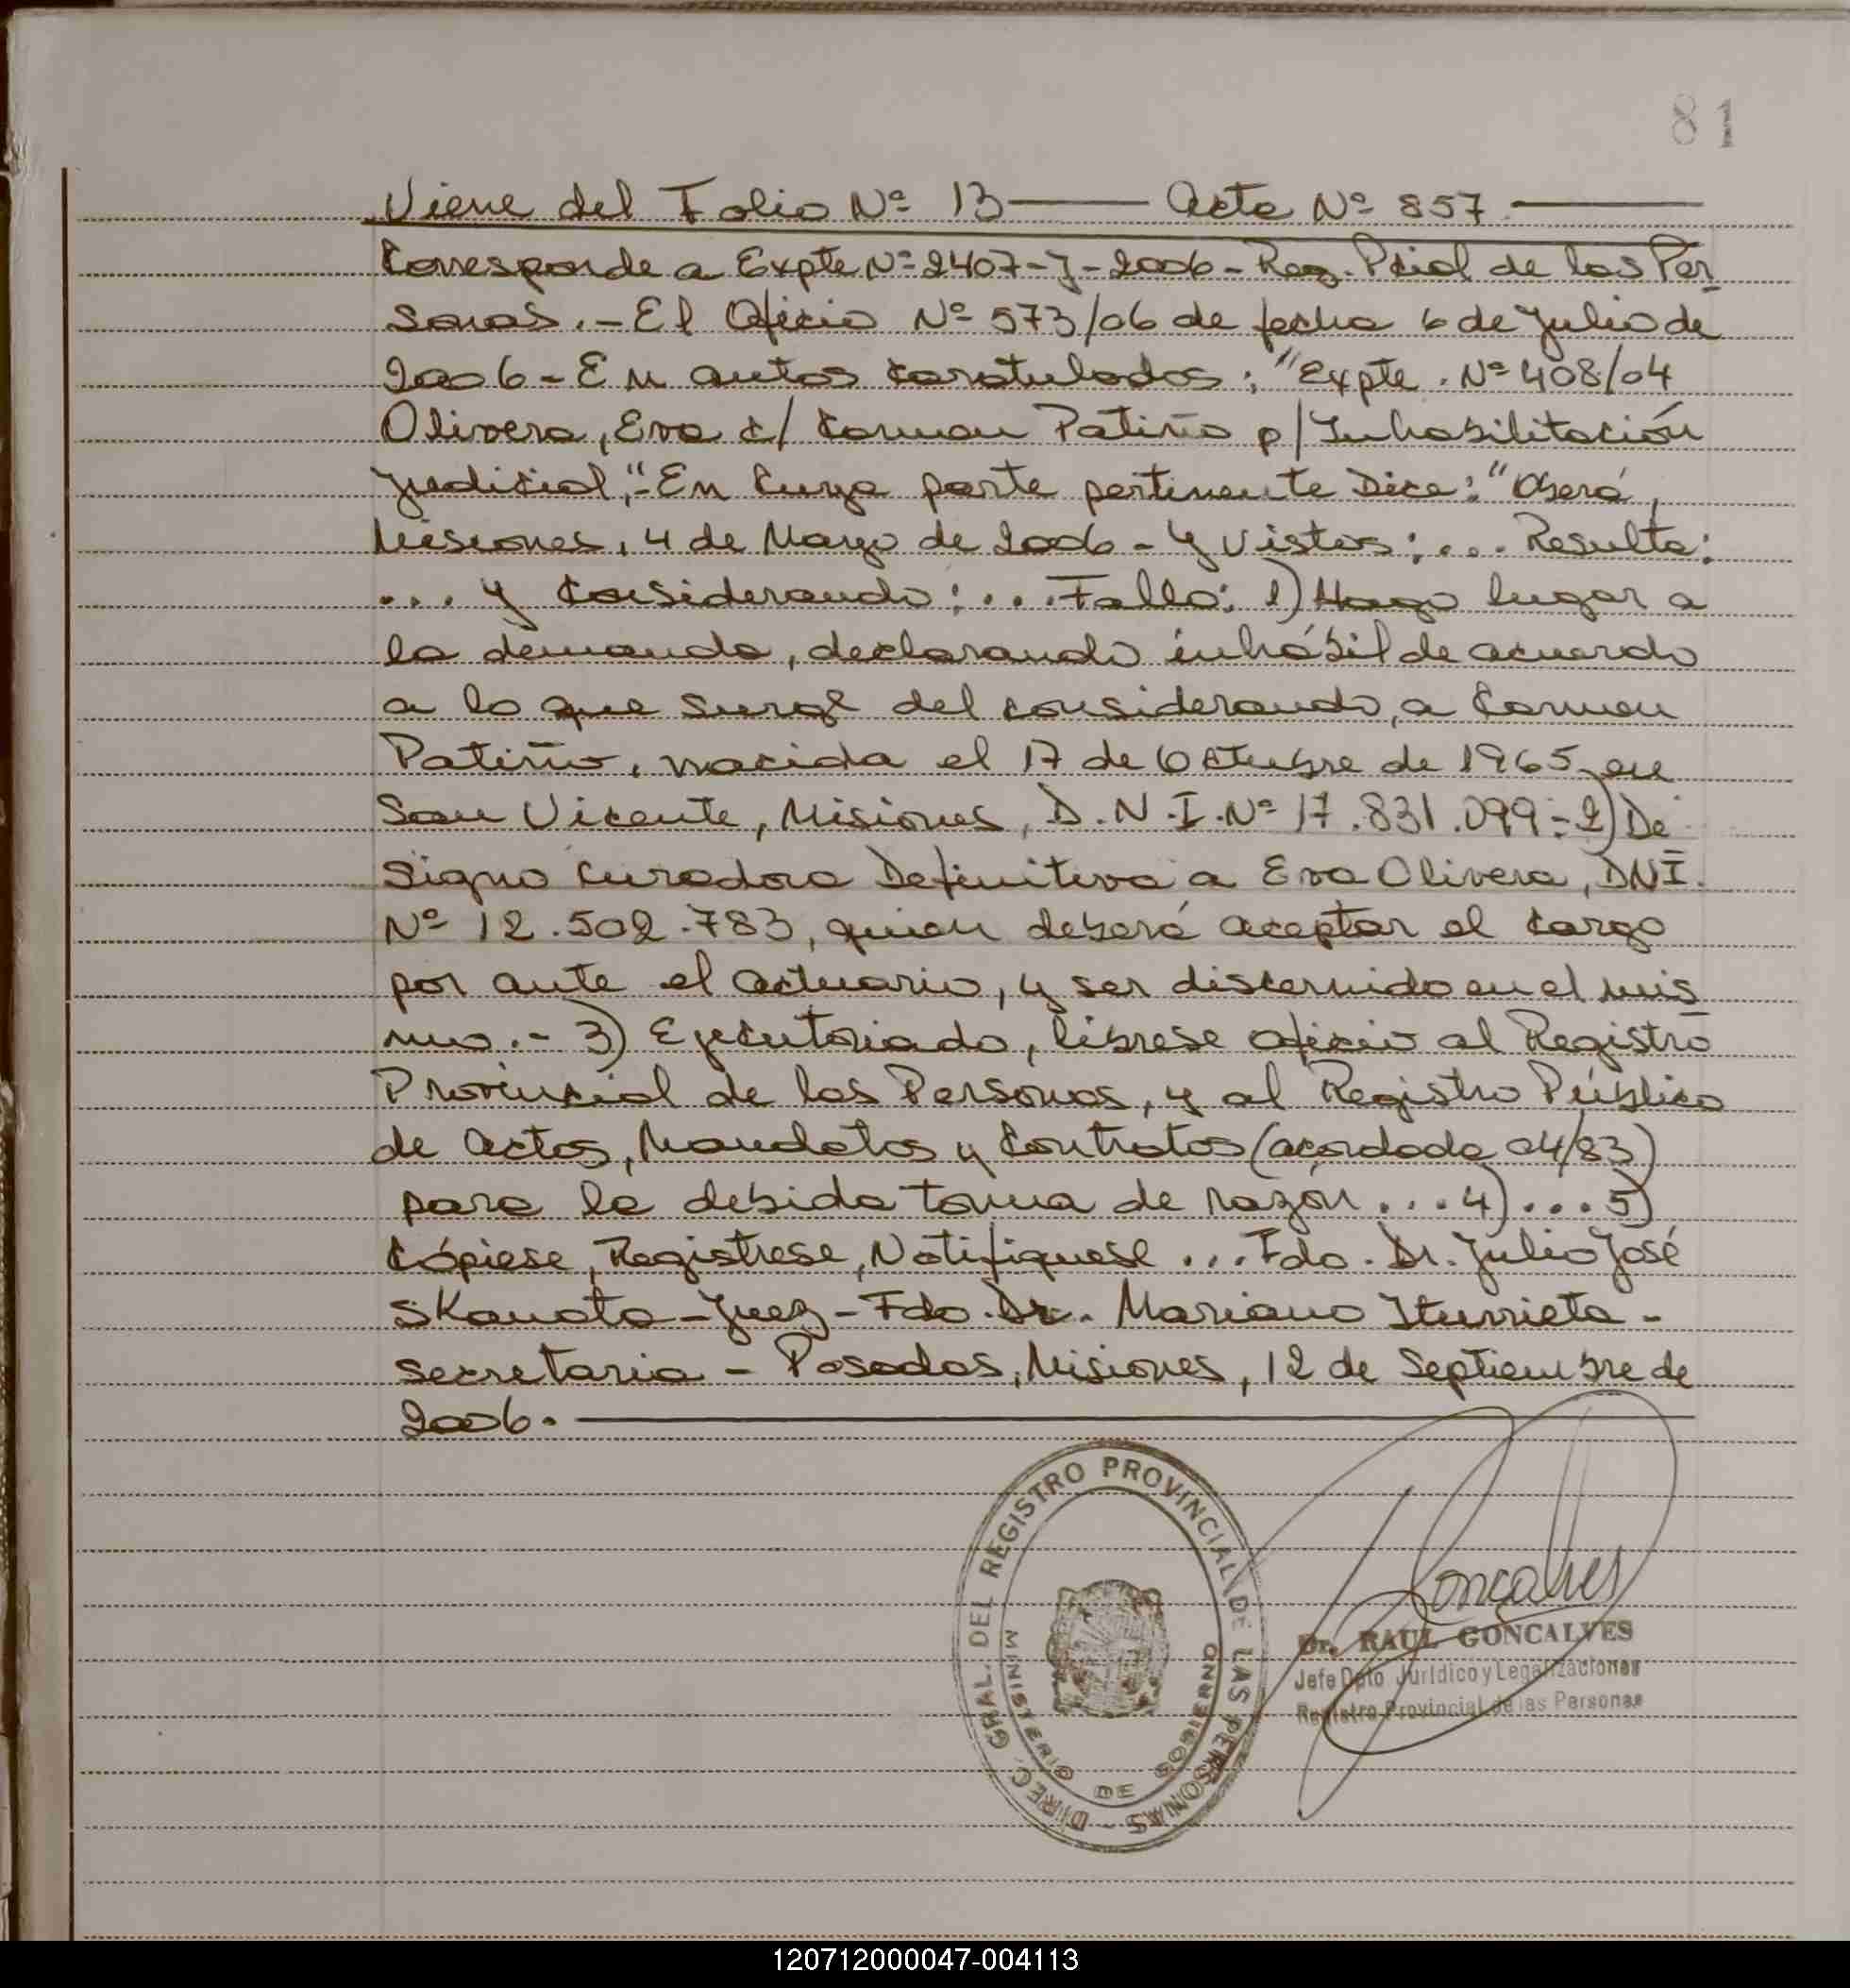 81
Viene del Folio Nº 13 —— Acta Nº 857 ——
Corresponde a Expte Nº 2407-J-2006 - Reg. Pcial de las Per
sonas. - El Oficio Nº 573/06 de fecha 6 de Julio de
2006 - En autos caratulados: "Expte. Nº 408/04
Olivera, Eva c/ Carmen Patiño p/ Inhabilitación
Judicial," - En cuya parte pertinente Dice: "Oberá,
Misiones, 4 de Mayo de 2006 - y vistos: ... Resulta:
... y Considerando: ... Fallo: 1) Hago lugar a
la demanda, declarando inhábil de acuerdo
a lo que surge del considerando, a Carmen
Patiño, nacida el 17 de Octubre de 1965 en
San Vicente, Misiones, D.N.I. Nº 17.831.099 - 2) De
signo Curadora Definitiva a Eva Olivera, DNI.
Nº 12.502.783, quien deberá aceptar el cargo
por ante el actuario, y ser discernido en el mis
mo. - 3) Ejecutoriado, líbrese oficio al Registro
Provincial de las Personas, y al Registro Público
de Actos, Mandatos y Contratos (acordada 04/83)
para la debida toma de razón ... 4) ... 5)
Cópiese, Registrese, Notifiquese ... Fdo. Dr. Julio José
Skanata - Juez - Fdo. Dr. Mariano Iturrieta -
secretaria - Posadas, Misiones, 12 de Septiembre de
2006. ——
DIREC. GRAL. DEL REGISTRO PROVINCIAL DE LAS PERSONAS -
MINISTERIO DE GOBIERNO
Goncalves
Dr. RAUL GONCALVES
Jefe Dpto Jurídico y Legalizaciones
Registro Provincial de las Personas
120712000047-004113